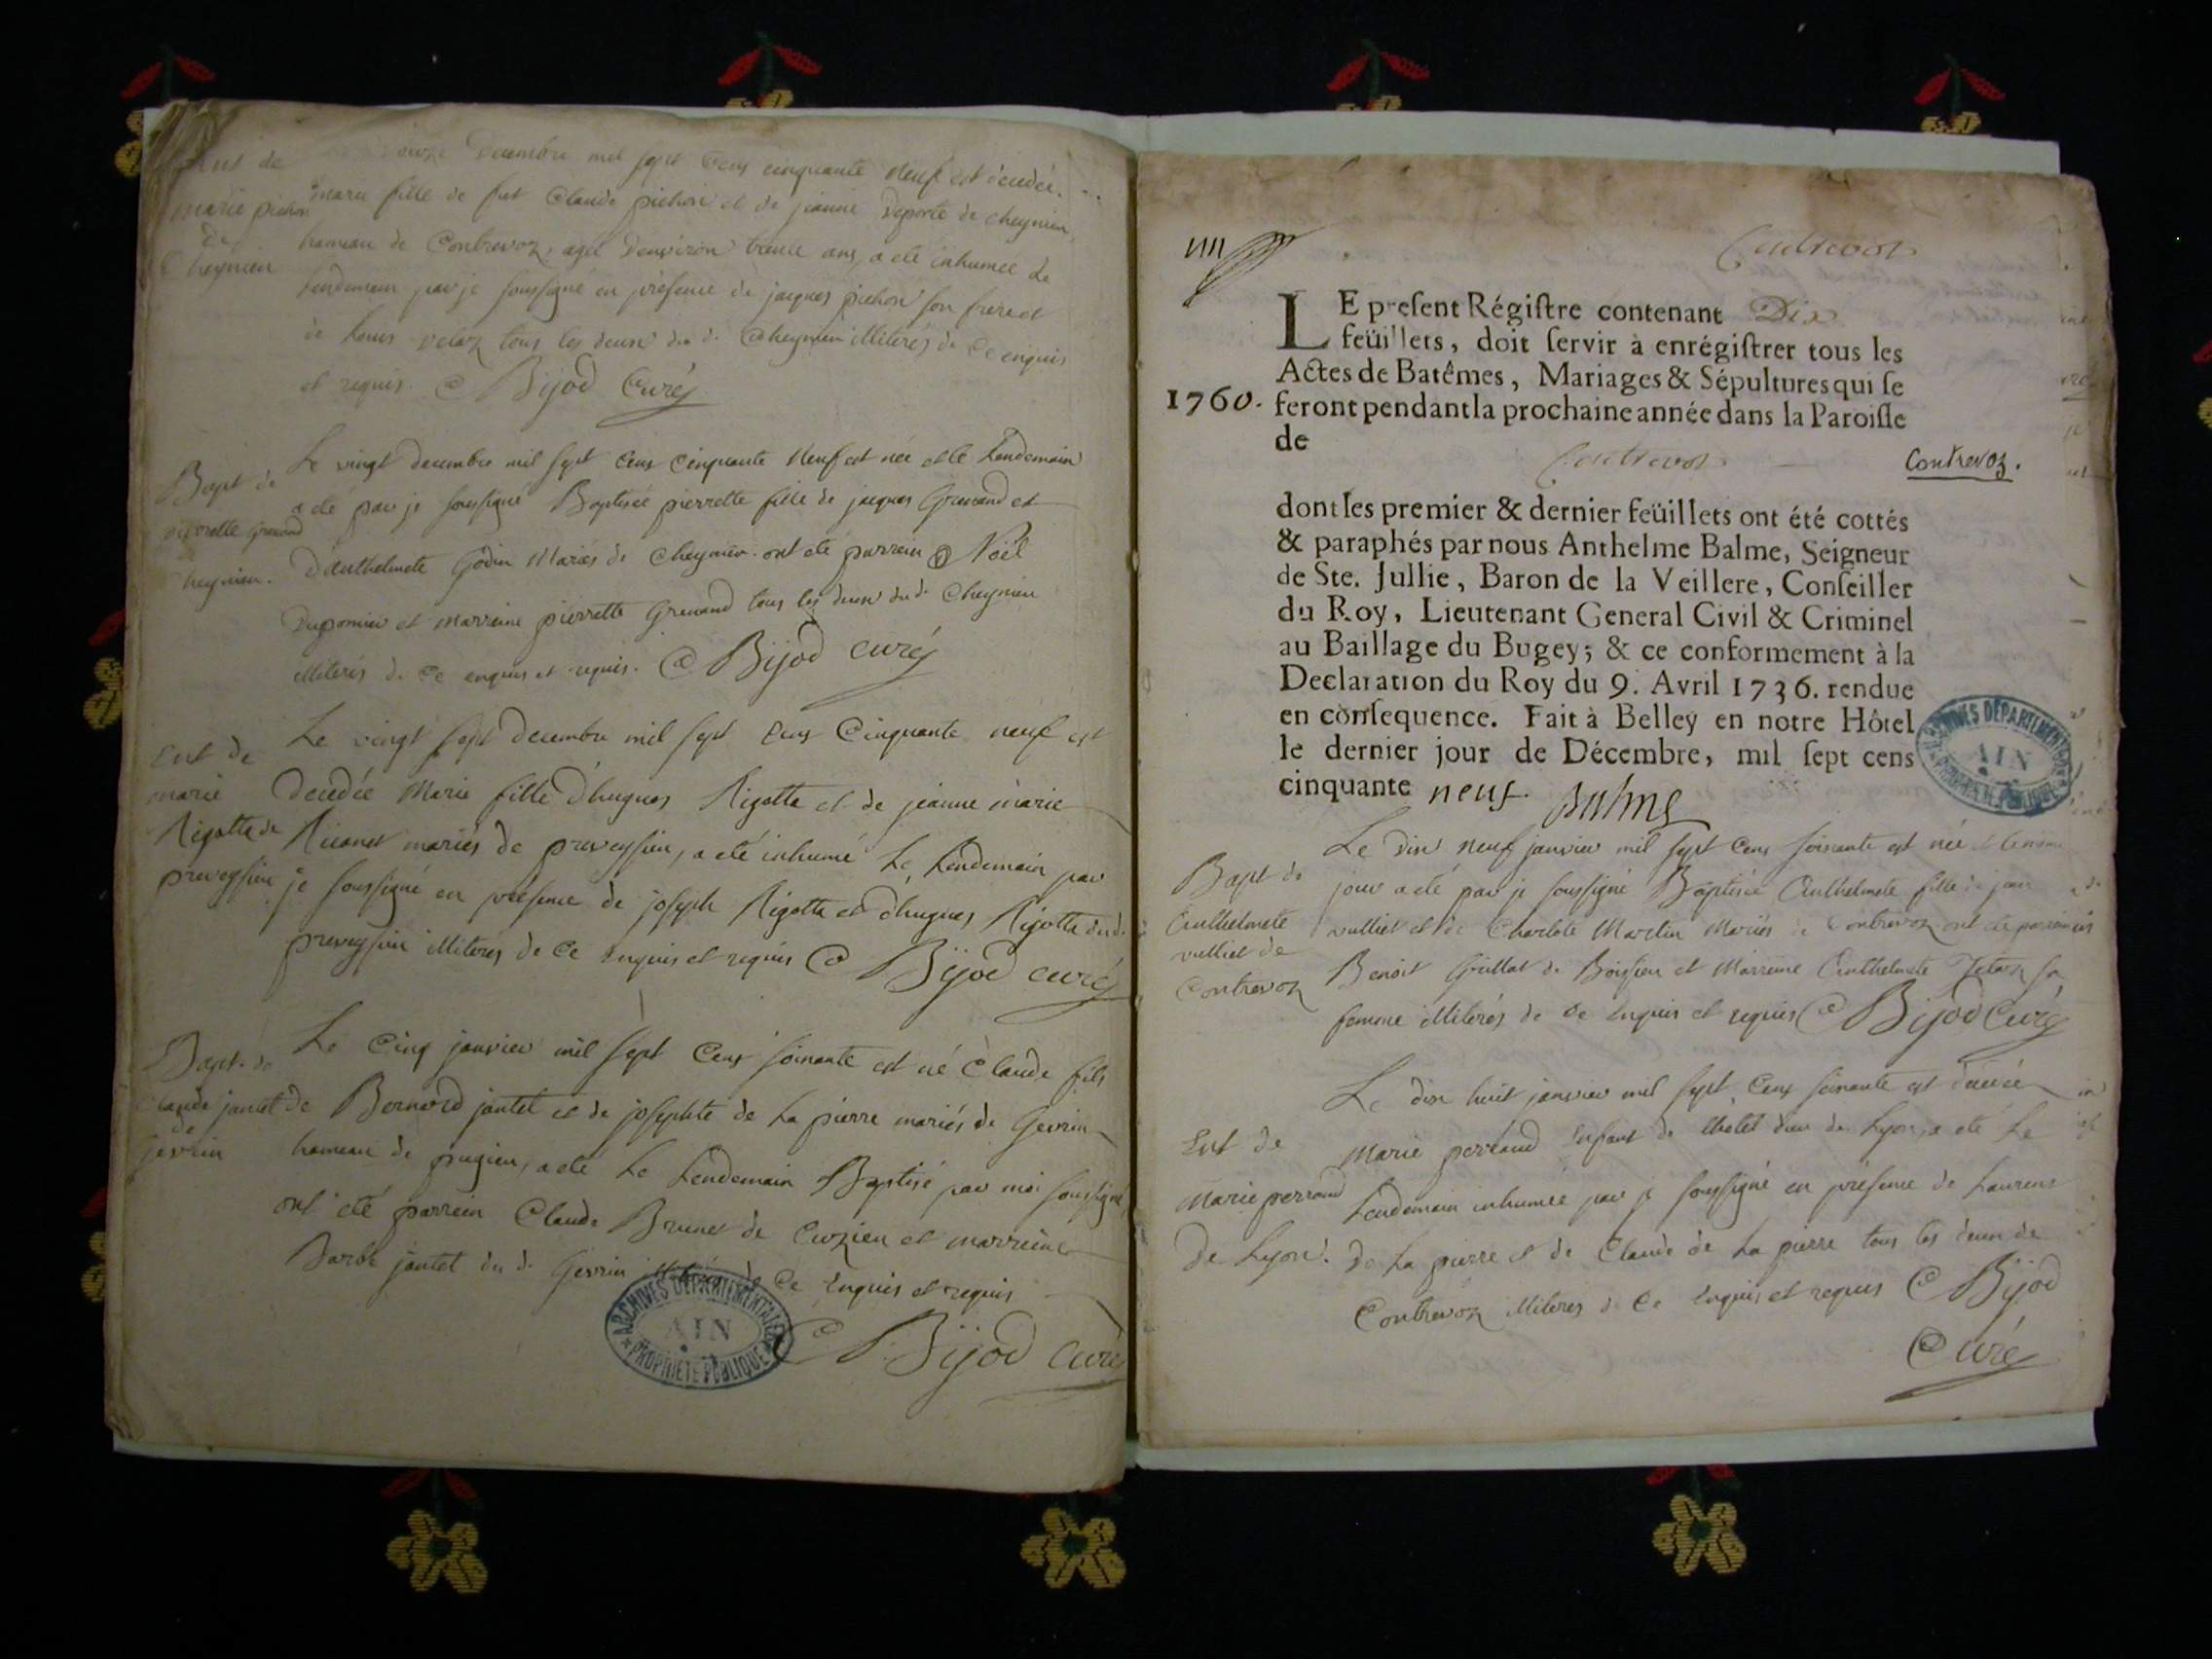 Ent de
marie pichon
de
Cheynieu
onze Decembre mil sept Cens cinquante Neuf est décedée
marie fille de fut Claude pichon et de jeanne Deporte de cheynieu
hameau de Contrevoz, agée d'environ trente ans, a été inhumée Le
Lendemain par je soussigné en présence de jacques pichon son frere et
de Louis velaz tous les deux du d. Cheynieu illiterés de Ce enquis
et requis. C Bijod Curé
Bapt de
pierrette Grenand
de
Cheynieu.
Le vingt decembre mil sept Cens Cinquante Neuf est née et le Lendemain
a été par je soussigné Baptisée pierrette fille de jacques Grenand et
D'anthelmete Godin Mariés de Cheynieu. ont été parrein Noël
Duponnier et marreine pierrette Grenand tous les deux du d. Cheynieu
illiterés de Ce enquis et requis. C Bijod curé
Ent de
marie
Rigotte de
preveyssieu
Le vingt sept Decembre mil sept Cens Cinquante neuf est
Decedée Marie fille d'hugues Rigotte et de jeanne marie
mariés de preveyssieu, a été inhumé Le Lendemain par
je soussigné en présence de joseph Rigotte et d'hugues Rigotte du d.
preveyssieu illiterés de Ce enquis et requis C Bijod curé
Bapt. de
Claude jantet
de
Gevrin
Le Cinq janvier mil sept Cens soixante est né Claude fils
de Bernard jantet et de josephte de La pierre mariés de Gevrin
hameau de pugieu, a été Le Lendemain Baptisé par moi soussigné
ont été parrein Claude Brunet de Cuzieu et marreine
Barbe jantet du d. Gevrin illiterés de Ce enquis et requis
C Bijod curé
ARCHIVES DEPARTEMENTALES
AIN
PROPRIETE PUBLIQUE
Contrevoz
LE present Régistre contenant Dix
feüillets, doit servir à enrégistrer tous les
Actes de Batêmes, Mariages & Sépultures qui se
1760. feront pendant la prochaine année dans la Paroisse
de Contrevoz Contrevoz.
dont les premier & dernier feüillets ont été cottés
& paraphés par nous Anthelme Balme, Seigneur
de Ste. Jullie, Baron de la Veillere, Conseiller
du Roy, Lieutenant General Civil & Criminel
au Baillage du Bugey; & ce conformement à la
Declaration du Roy du 9. Avril 1736. rendue
en consequence. Fait à Belley en notre Hôtel
le dernier jour de Décembre, mil sept cens
cinquante neuf. Balme
ARCHIVES DEPARTEMENTALES
AIN
PROPRIETE PUBLIQUE
Bapt de
Anthelmete
vulliet de
Contrevoz
Le dix neuf janvier mil sept Cens soixante est née et le même
jour a été par je soussigné Baptisée Anthelmete fille de jean
vulliet et de Charlote Martin Mariés de Contrevoz ont été parrein
Benoit Guillot de Boissieu et Marreine Anthelmete sa
femme illiterés de Ce enquis et requis C Bijod Curé
Ent de
Marie perraud
De Lyon.
Le dix huit janvier mil sept Cens soixante est décedée
Marie perraud enfant de lhotel dieu de Lyon, a été Le
Lendemain inhumée par je soussigné en présence de Laurent
De La pierre et de Claude de La pierre tous les deux de
Contrevoz illiteres de Ce enquis et requis C Bijod
Curé